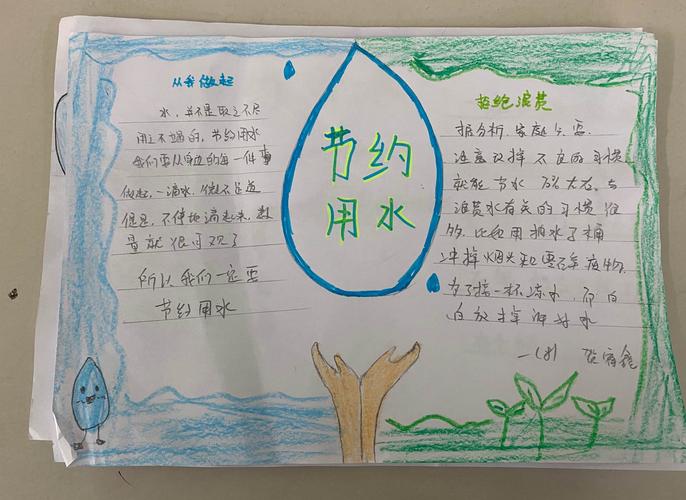 从我做起
水，并不是取之不尽
用之不竭的，节约用水
我们要从身边的每一件事
做起，一滴水，微不足道
但是，不停地滴起来，数
量就很可观了
所以我们一定要
节约用水
节约
用水
拒绝浪费
据分析，家庭只要
注意改掉不良的习惯
就能节水70%左右，与
浪费水有关的习惯很
多，比如用抽水马桶
冲掉烟头和零碎废物，
为了接一杯凉水，而白
白放掉许多水
一(8)